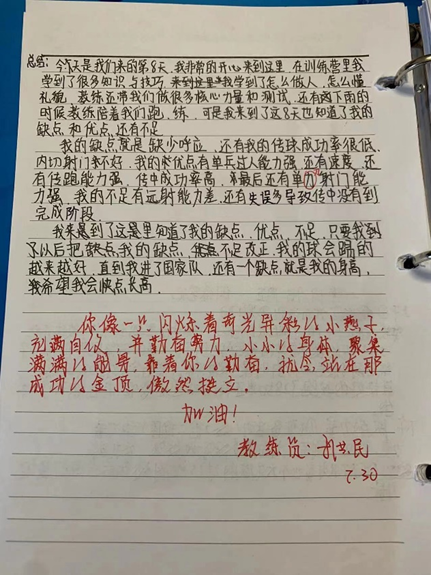 总结：今天是我们来的第8天，我非常的开心来到这里，在训练营里我
学到了很多知识与技巧，来到这里我学到了怎么做人，怎么懂
礼貌，教练还带我们做很多核心力量和测试，还有图下雨的
时候教练陪着我们跑，练，可是我来到了这8天也知道了我的
缺点和优点还有不足
我的缺点就是缺少呼应，还有我的传球成功率很低，
内切射门不好，我的优点有单兵过人能力强，还有速度，还
有传跑能力强，传中成功率高，最后还有单刀射门能
力强，我的不足有远射能力差，还有失误多导致传中没有到
完成阶段
我来到了这里知道了我的缺点，优点，不足，只要我到
了以后把我的缺点，不足改正，我的球会踢的
越来越好，直到我进了国家队，还有一个缺点就是我的身高，
我希望我会快点长高。
你像一只闪烁着奇光异彩的小燕子，
充满自信，并勤奋努力，小小的身体，聚集
满满的能量，靠着你的勤奋，站在那
成功的金顶，傲然挺立。
加油！
教练员：民
7.30